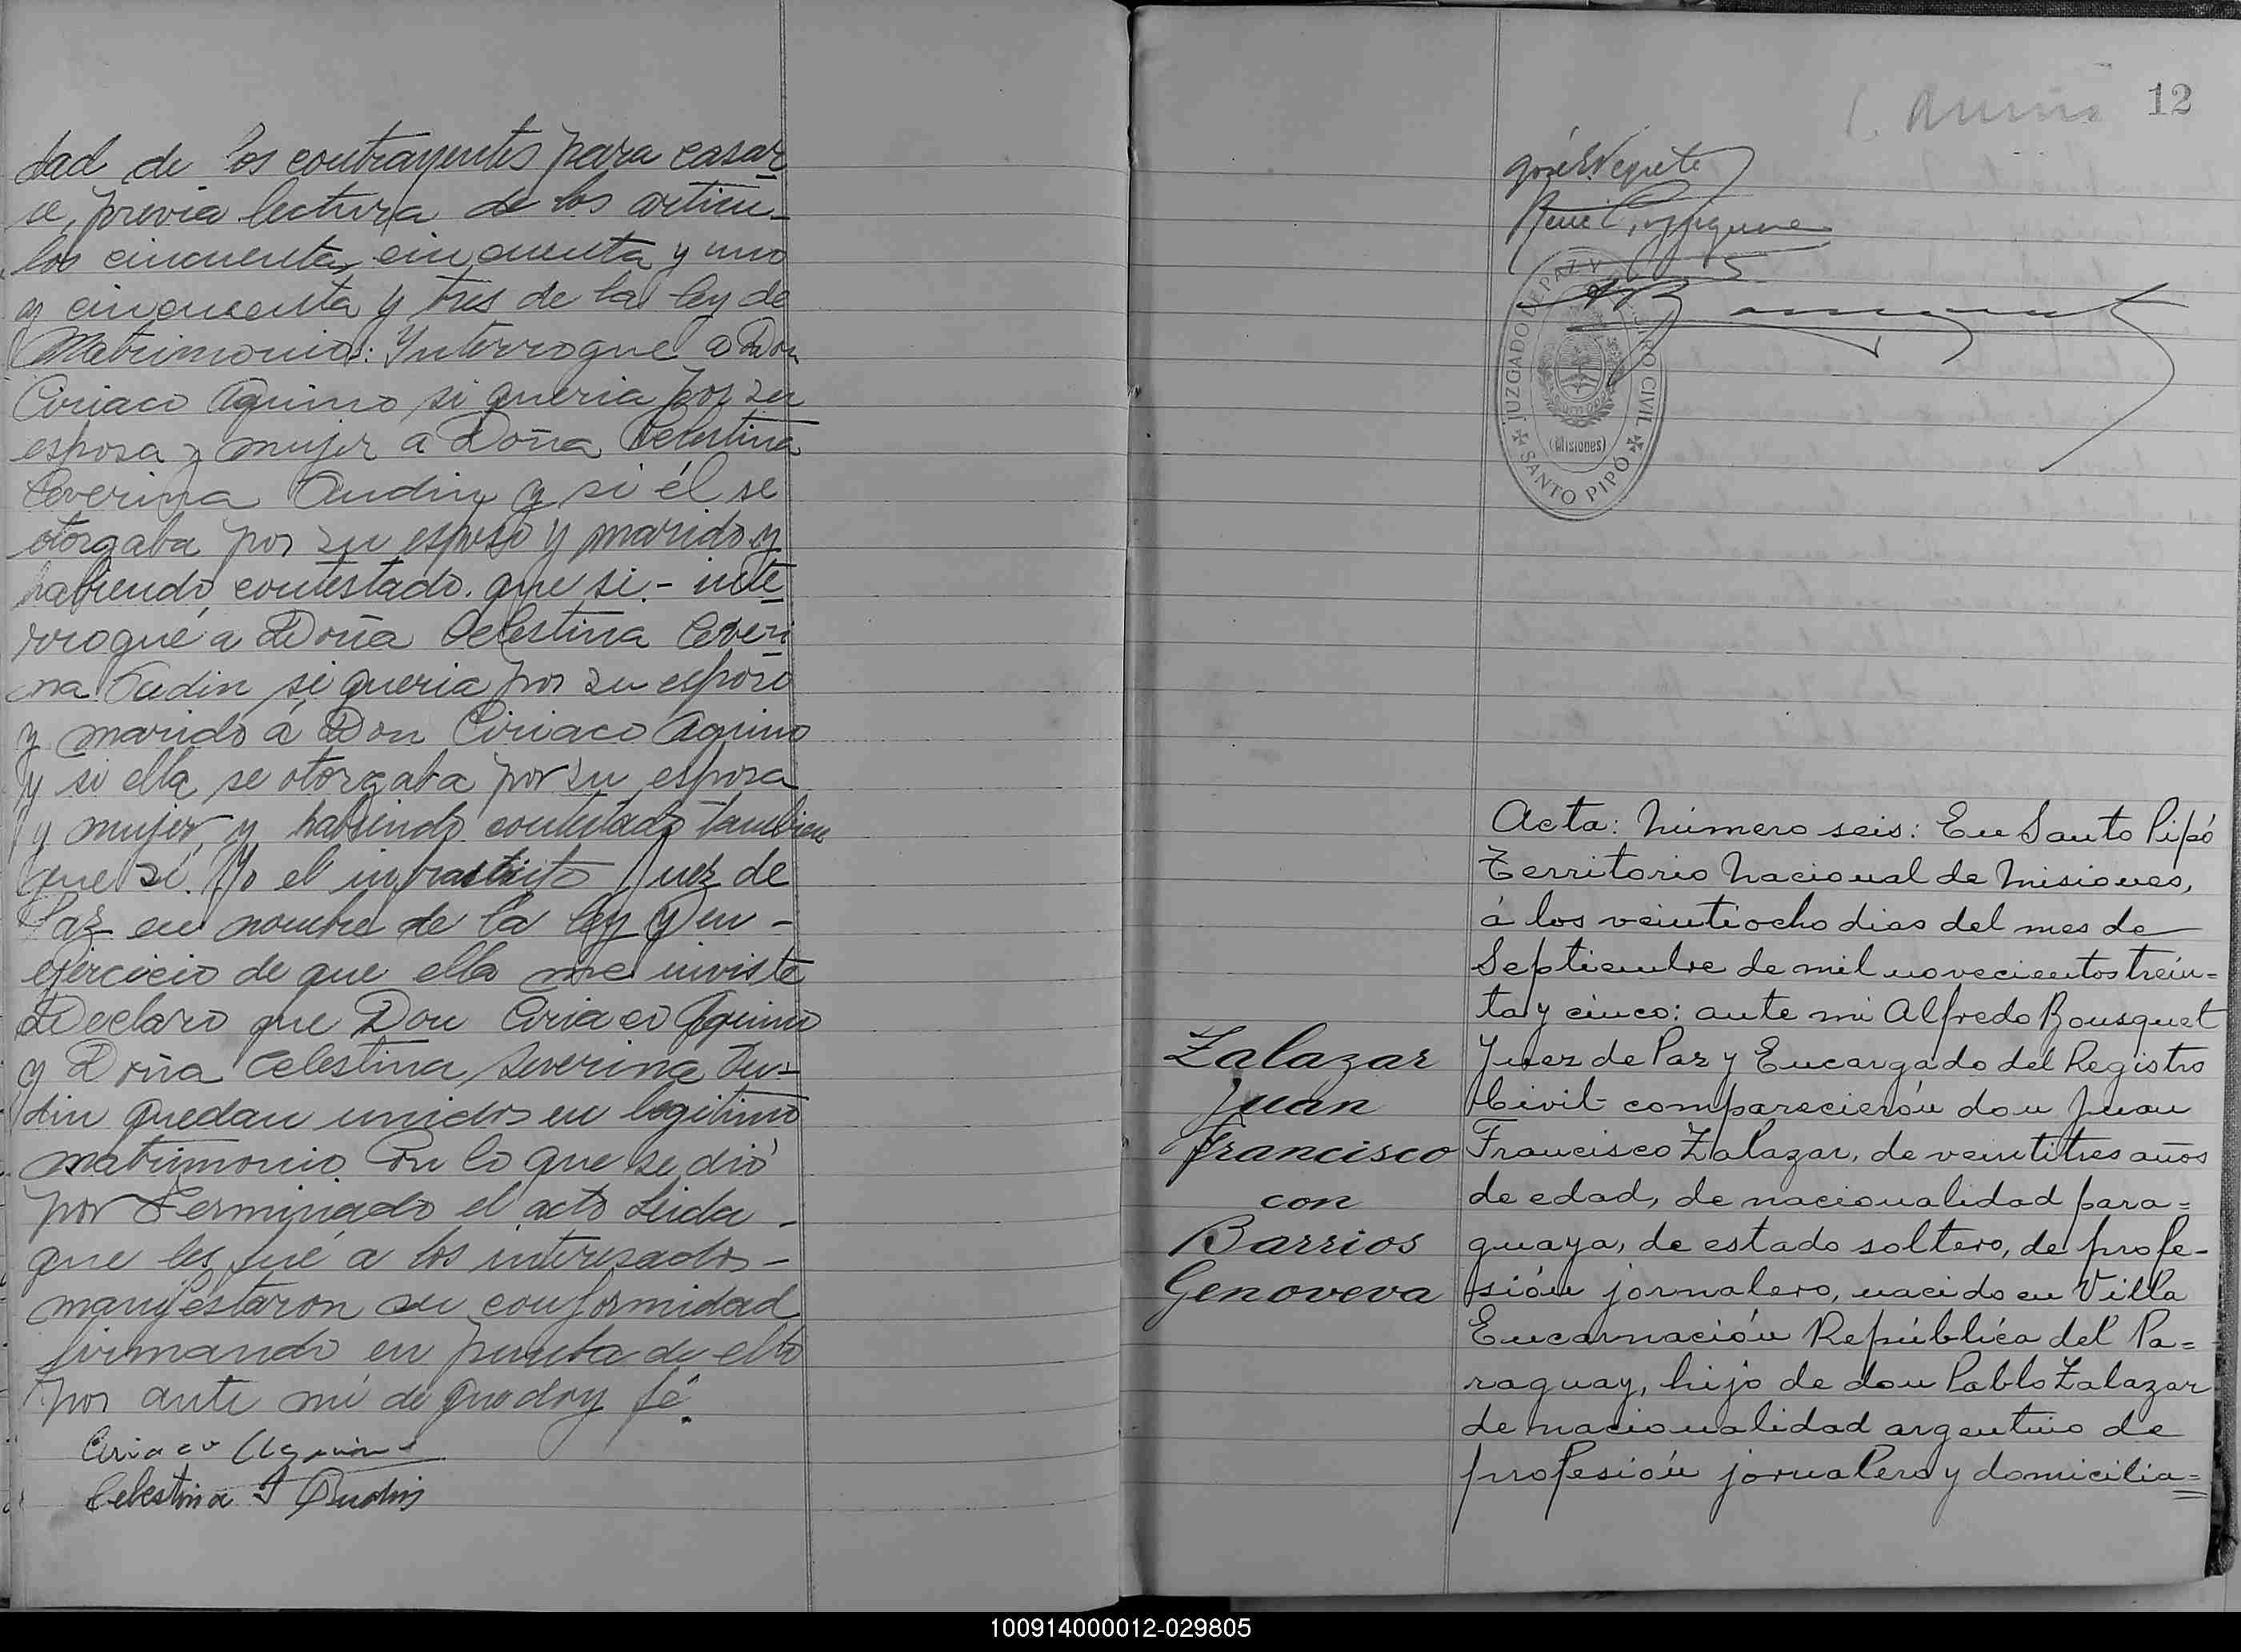 dad de los contrayentes para casar
se, previa lectura de los articu-
los cincuenta, cincuenta y uno
y cincuenta y tres de la ley de
Matrimonio: Interrogue a Don
Ciriaco Aquino si queria por su
esposa y mujer a Doña Celestina
Ceverina Oudin y si él se
otorgaba por su esposo y marido y
habiendo contestado que si.- inte
rrogué a Doña Celestina Ceveri
na Oudin si queria por su esposo
y marido á Don Ciriaco Aquino
y si ella se otorgaba por su esposa
y mujer, y habiendo contestado tambien
que sí. Yo el infrascrito Juez de
Paz en nombre de la ley y en -
ejercicio de que ella me inviste
Declaro que Don Ciriaco Aquino
y Doña Celestina Severina Ou-
din quedan unidos en legitimo
matrimonio Con lo que se dió
por Terminado el acto Leida -
que les fué a los interesados -
manifestaron su conformidad
firmando en prueba de ello
por ante mi de que doy fé.
Ciriaco Aquino
Celestina S Oudin
12
José Negrete
René C.
JUZGADO DE PAZ Y REGISTRO CIVIL
(Misiones)
SANTO PIPÓ
Acta: Número seis: En Santo Pipó
Territorio Nacional de Misiones,
á los veintiocho dias del mes de
Septiembre de mil novecientos trein=
ta y cinco: ante mi Alfredo Bousquet
Juez de Paz y Encargado del Registro
Civil comparecierón don Juan
Francisco Zalazar, de veintitres años
de edad, de nacionalidad para=
guaya, de estado soltero, de profe-
sión jornalero, nacido en Villa
Encarnación República del Pa=
raguay, hijo de don Pablo Zalazar
de nacionalidad argentino de
profesión jornalero y domicilia=
Zalazar
Juan
Francisco
con
Barrios
Genoveva
100914000012-029805